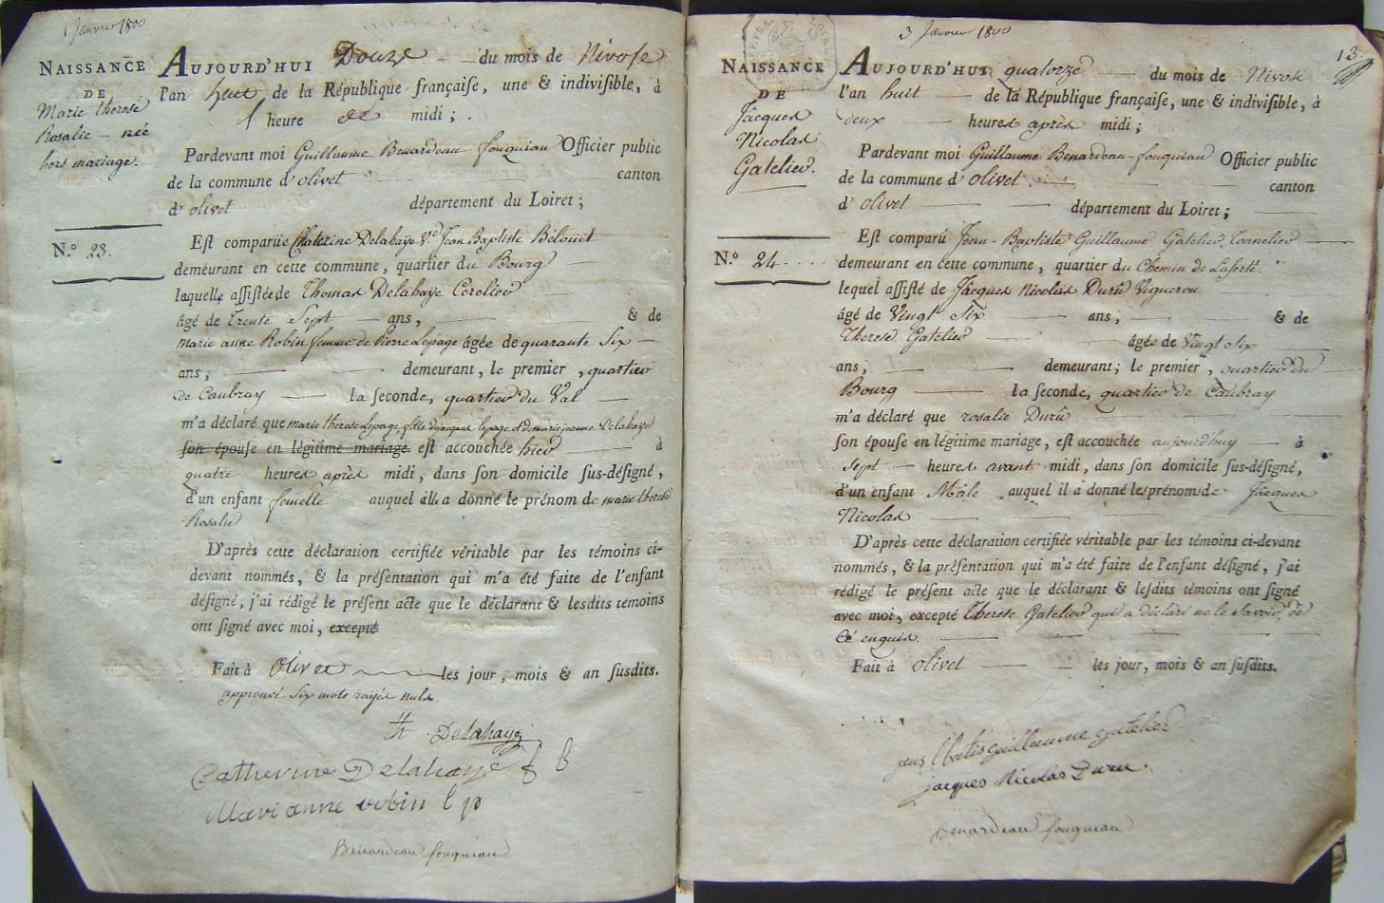 1 Janvier 1800
NAISSANCE
DE
Marie therese
Rosalie - née
hors mariage.
N.º 23.
AUJOURD'HUI Douze du mois de Nivose
l'an huit de la République françaiſe, une & indiviſible, à
1 heure de midi ;
Pardevant moi Guillaume Benardeau fouquiau Officier public
de la commune d'olivet canton
d'olivet département du Loiret ;
Eſt comparüe Chaterine Delahaye V.e Jean Baptiste Belouit
demeurant en cette commune, quartier du Bourg
laquelle aſſiſtée de Thomas Delahaye
âgé de trente Sept ans, & de
marie anne Robin femme de Pierre Lepage âgée de quarante Six
ans, demeurant, le premier, quartier
de Caubray la ſeconde, quartier du Val
m'a déclaré que marie therese Lepage fille de jacques lepage et de marie jeanne Delahaye
ſon épouſe en légitime mariage eſt accouchée hier à
quatre heures après midi, dans ſon domicile ſus-déſigné,
d'un enfant femelle auquel elle a donné le prénom de marie therese
Rosalie
D'après cette déclaration certifiée véritable par les témoins ci-
devant nommés, & la préſentation qui m'a été faite de l'enfant
déſigné, j'ai rédigé le préſent acte que le déclarant & leſdits témoins
ont ſigné avec moi, excepté
Fait à Olivet les jour, mois & an ſusdits.
approuvé Six mots rayés nuls
Delahaye
Catherine Delahaye
Marianne robin l p
Benardeau fouquiau
3 Janvier 1800
13
NAISSANCE
DE
Jacques
Nicolas
Gatelier.
N.º 24
AUJOURD'HUI quatorze du mois de Nivose
l'an huit de la République françaiſe, une & indiviſible, à
deux heures après midi ;
Pardevant moi Guillaume Benardeau-fouquiau Officier public
de la commune d'olivet canton
d'olivet département du Loiret ;
Eſt comparu Jean-Baptiste Guillaume Gatelier Tonnelier
demeurant en cette commune, quartier du Chemin de Laferté
lequel aſſiſté de Jacques Nicolas Durü Vigneron
âgé de Vingt Six ans, & de
Therese Gatelier âgée de Vingt six
ans, demeurant ; le premier, quartier du
Bourg la ſeconde, quartier de Caubray
m'a déclaré que rosalie Durü
ſon épouſe en légitime mariage, eſt accouchée aujourd'huy à
Sept heures avant midi, dans ſon domicile ſus-déſigné,
d'un enfant Mâle auquel il a donné les prénoms de Jacques
Nicolas
D'après cette déclaration certifiée véritable par les témoins ci-devant
nommés, & la préſentation qui m'a été faite de l'enfant déſigné, j'ai
rédigé le préſent acte que le déclarant & leſdits témoins ont ſigné
avec moi, excepté Therese Gatelier qui a déclaré ne le Savoir, de
ce enquis.
Fait à olivet les jour, mois & an ſuſdits.
guillaume gatelier
jacques Nicolas Duru.
Benardeau fouquiau